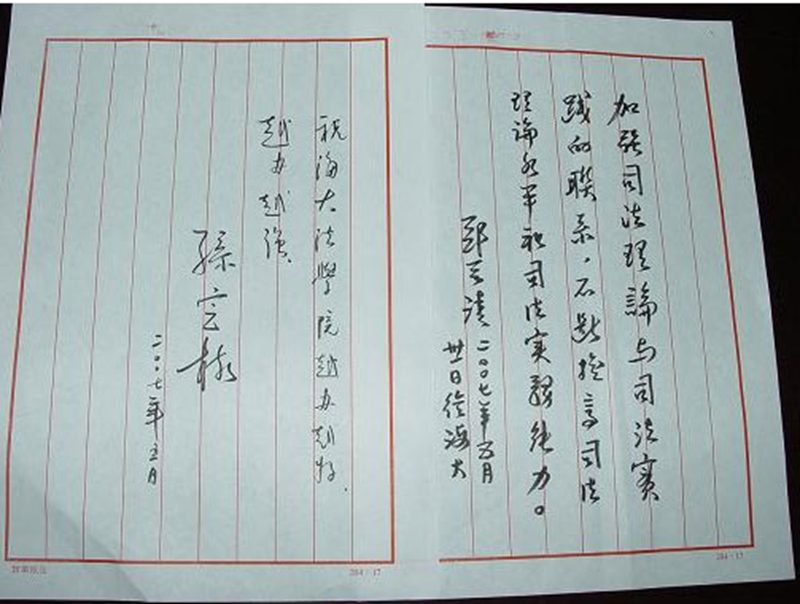 加强司法理論与司法實
践的聯系，不断提高司法
理論水平和司法实務能力。
二00七年五月
卅日於海大
祝海大法學院越办越好、
越办越强。
孫
二00七年五月
204-17
204-17